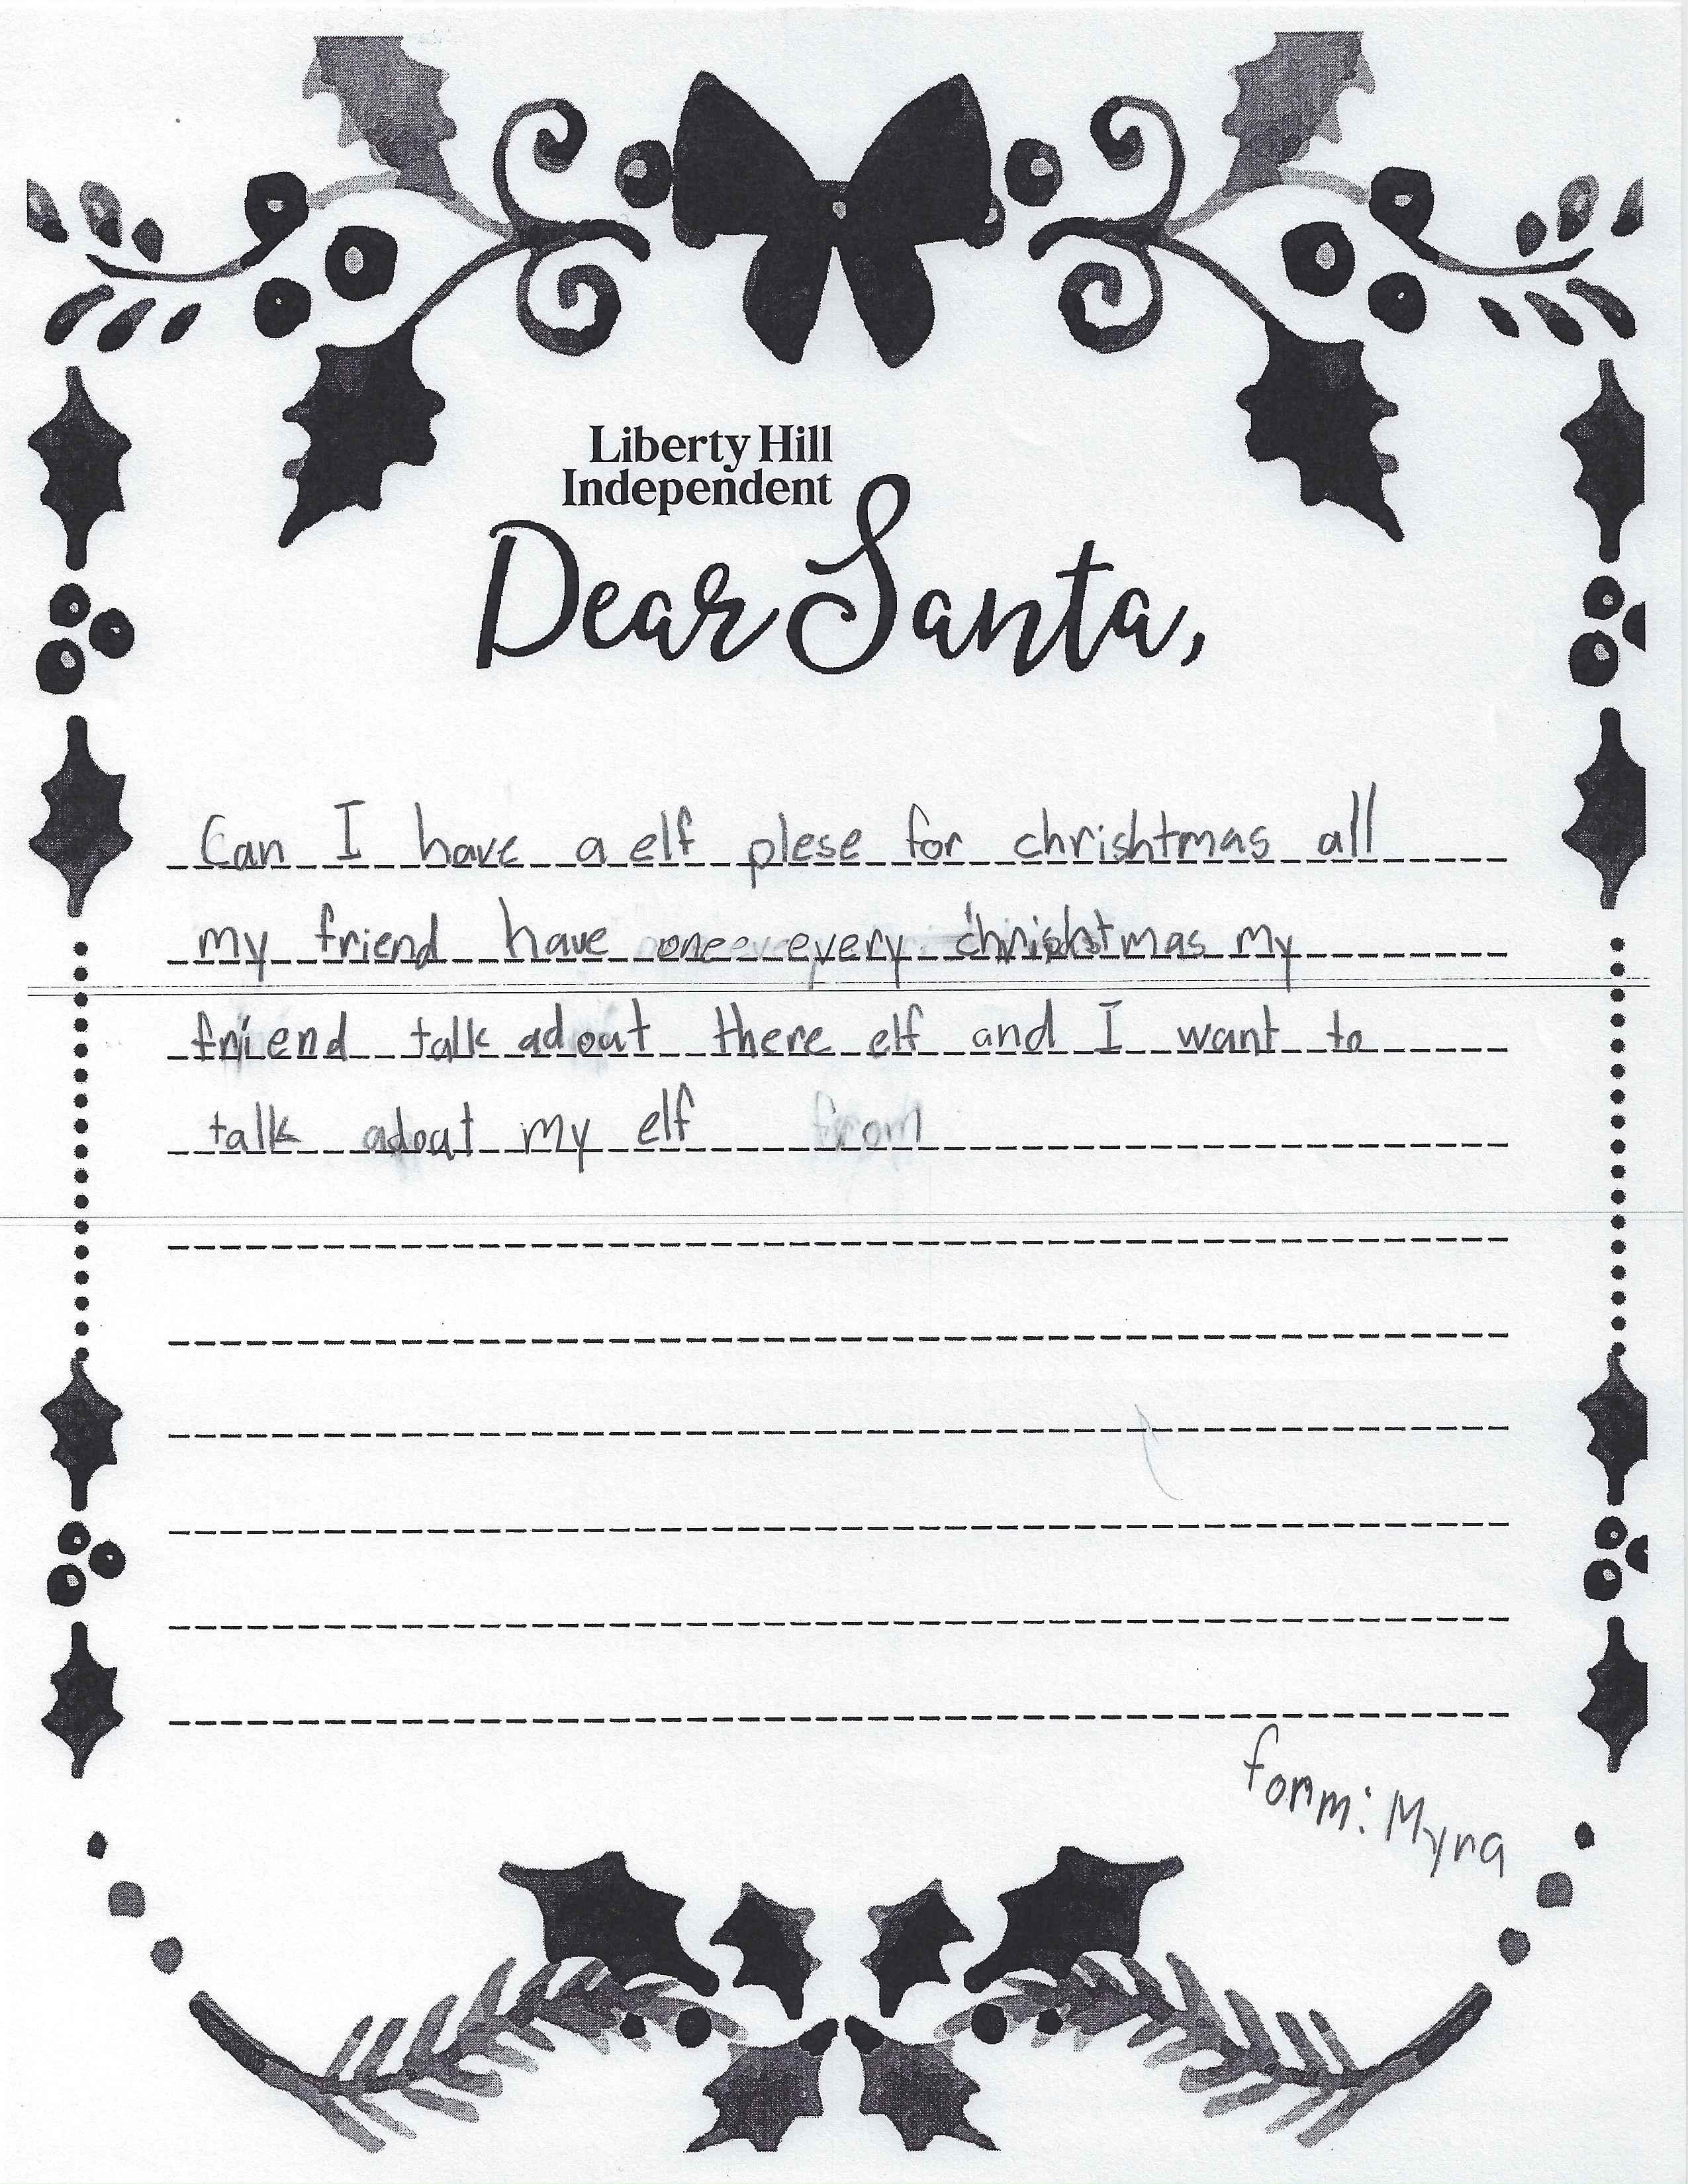 Liberty Hill
Independent
Dear Santa,
Can I have a elf plese for chrishtmas all
my friend have one every chrishtmas my
friend talk adout there elf and I want to
talk adout my elf from
form: Myra